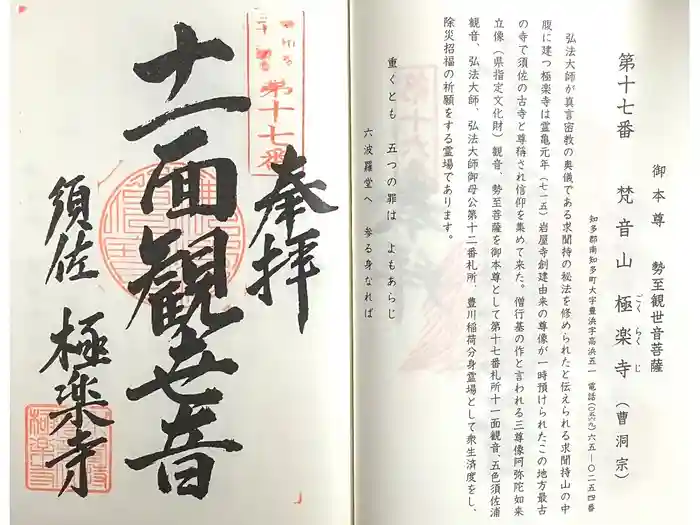 御本尊 勢至観世音菩薩
第十七番 梵音山 極楽寺(曹洞宗)
ごく らく じ
知多郡南知多町大字豊浜字高浜五一 電話(〇五六九)六五ー〇二五四番
弘法大師が真言密教の奥儀である求聞持の秘法を修められたと伝えられる求聞持山の中
腹に建つ極楽寺は霊亀元年(七一五)岩屋寺創建由来の尊像が一時預けられたこの地方最古
の寺で須佐の古寺と尊称され信仰を集めて来た。僧行基の作と言われる三尊像阿弥陀如来
立像(県指定文化財)観音、勢至菩薩を御本尊として第十七番札所十一面観音、五色須佐浦
観音、弘法大師、弘法大師御母公第十二番札所、豊川稲荷分身霊場として衆生済度をし、
除災招福の祈願をする霊場であります。
重くとも 五つの罪は よもあらじ
六波羅堂へ 参る身なれば
第十七番
奉拝
十一面観世音
須佐 極楽寺